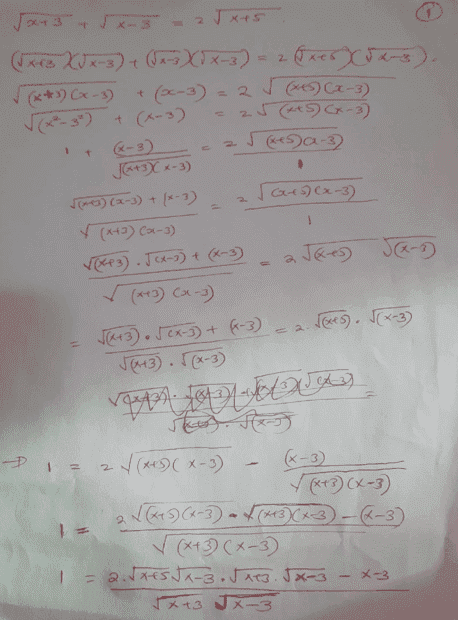 ①
√x+3 + √x-3 = 2 √x+5
(√x+3)(√x-3) + (√x-3)(√x-3) = 2 (√x+5)(√x-3).
√(x+3)(x-3) + (x-3) = 2 √(x+5)(x-3)
√(x²-3²) + (x-3) = 2√(x+5)(x-3)
1 + (x-3) / √(x+3)(x-3) = 2√(x+5)(x-3) / 1
√(x+3)(x-3) + (x-3) / √(x+3)(x-3) = 2√(x+5)(x-3) / 1
√(x+3) . √(x-3) + (x-3) / √(x+3)(x-3) = 2√(x+5) √(x-3)
= √(x+3) . √(x-3) + (x-3) / √(x+3) . √(x-3) = 2. √(x+5) . √(x-3)
→ 1 = 2√(x+5)(x-3) - (x-3) / √(x+3)(x-3)
1 = 2√(x+5)(x-3) - √(x+3)(x-3) - (x-3) / √(x+3)(x-3)
1 = 2.√x+5.√x-3 . √x+3. √x-3 - x-3 / √x+3 √x-3